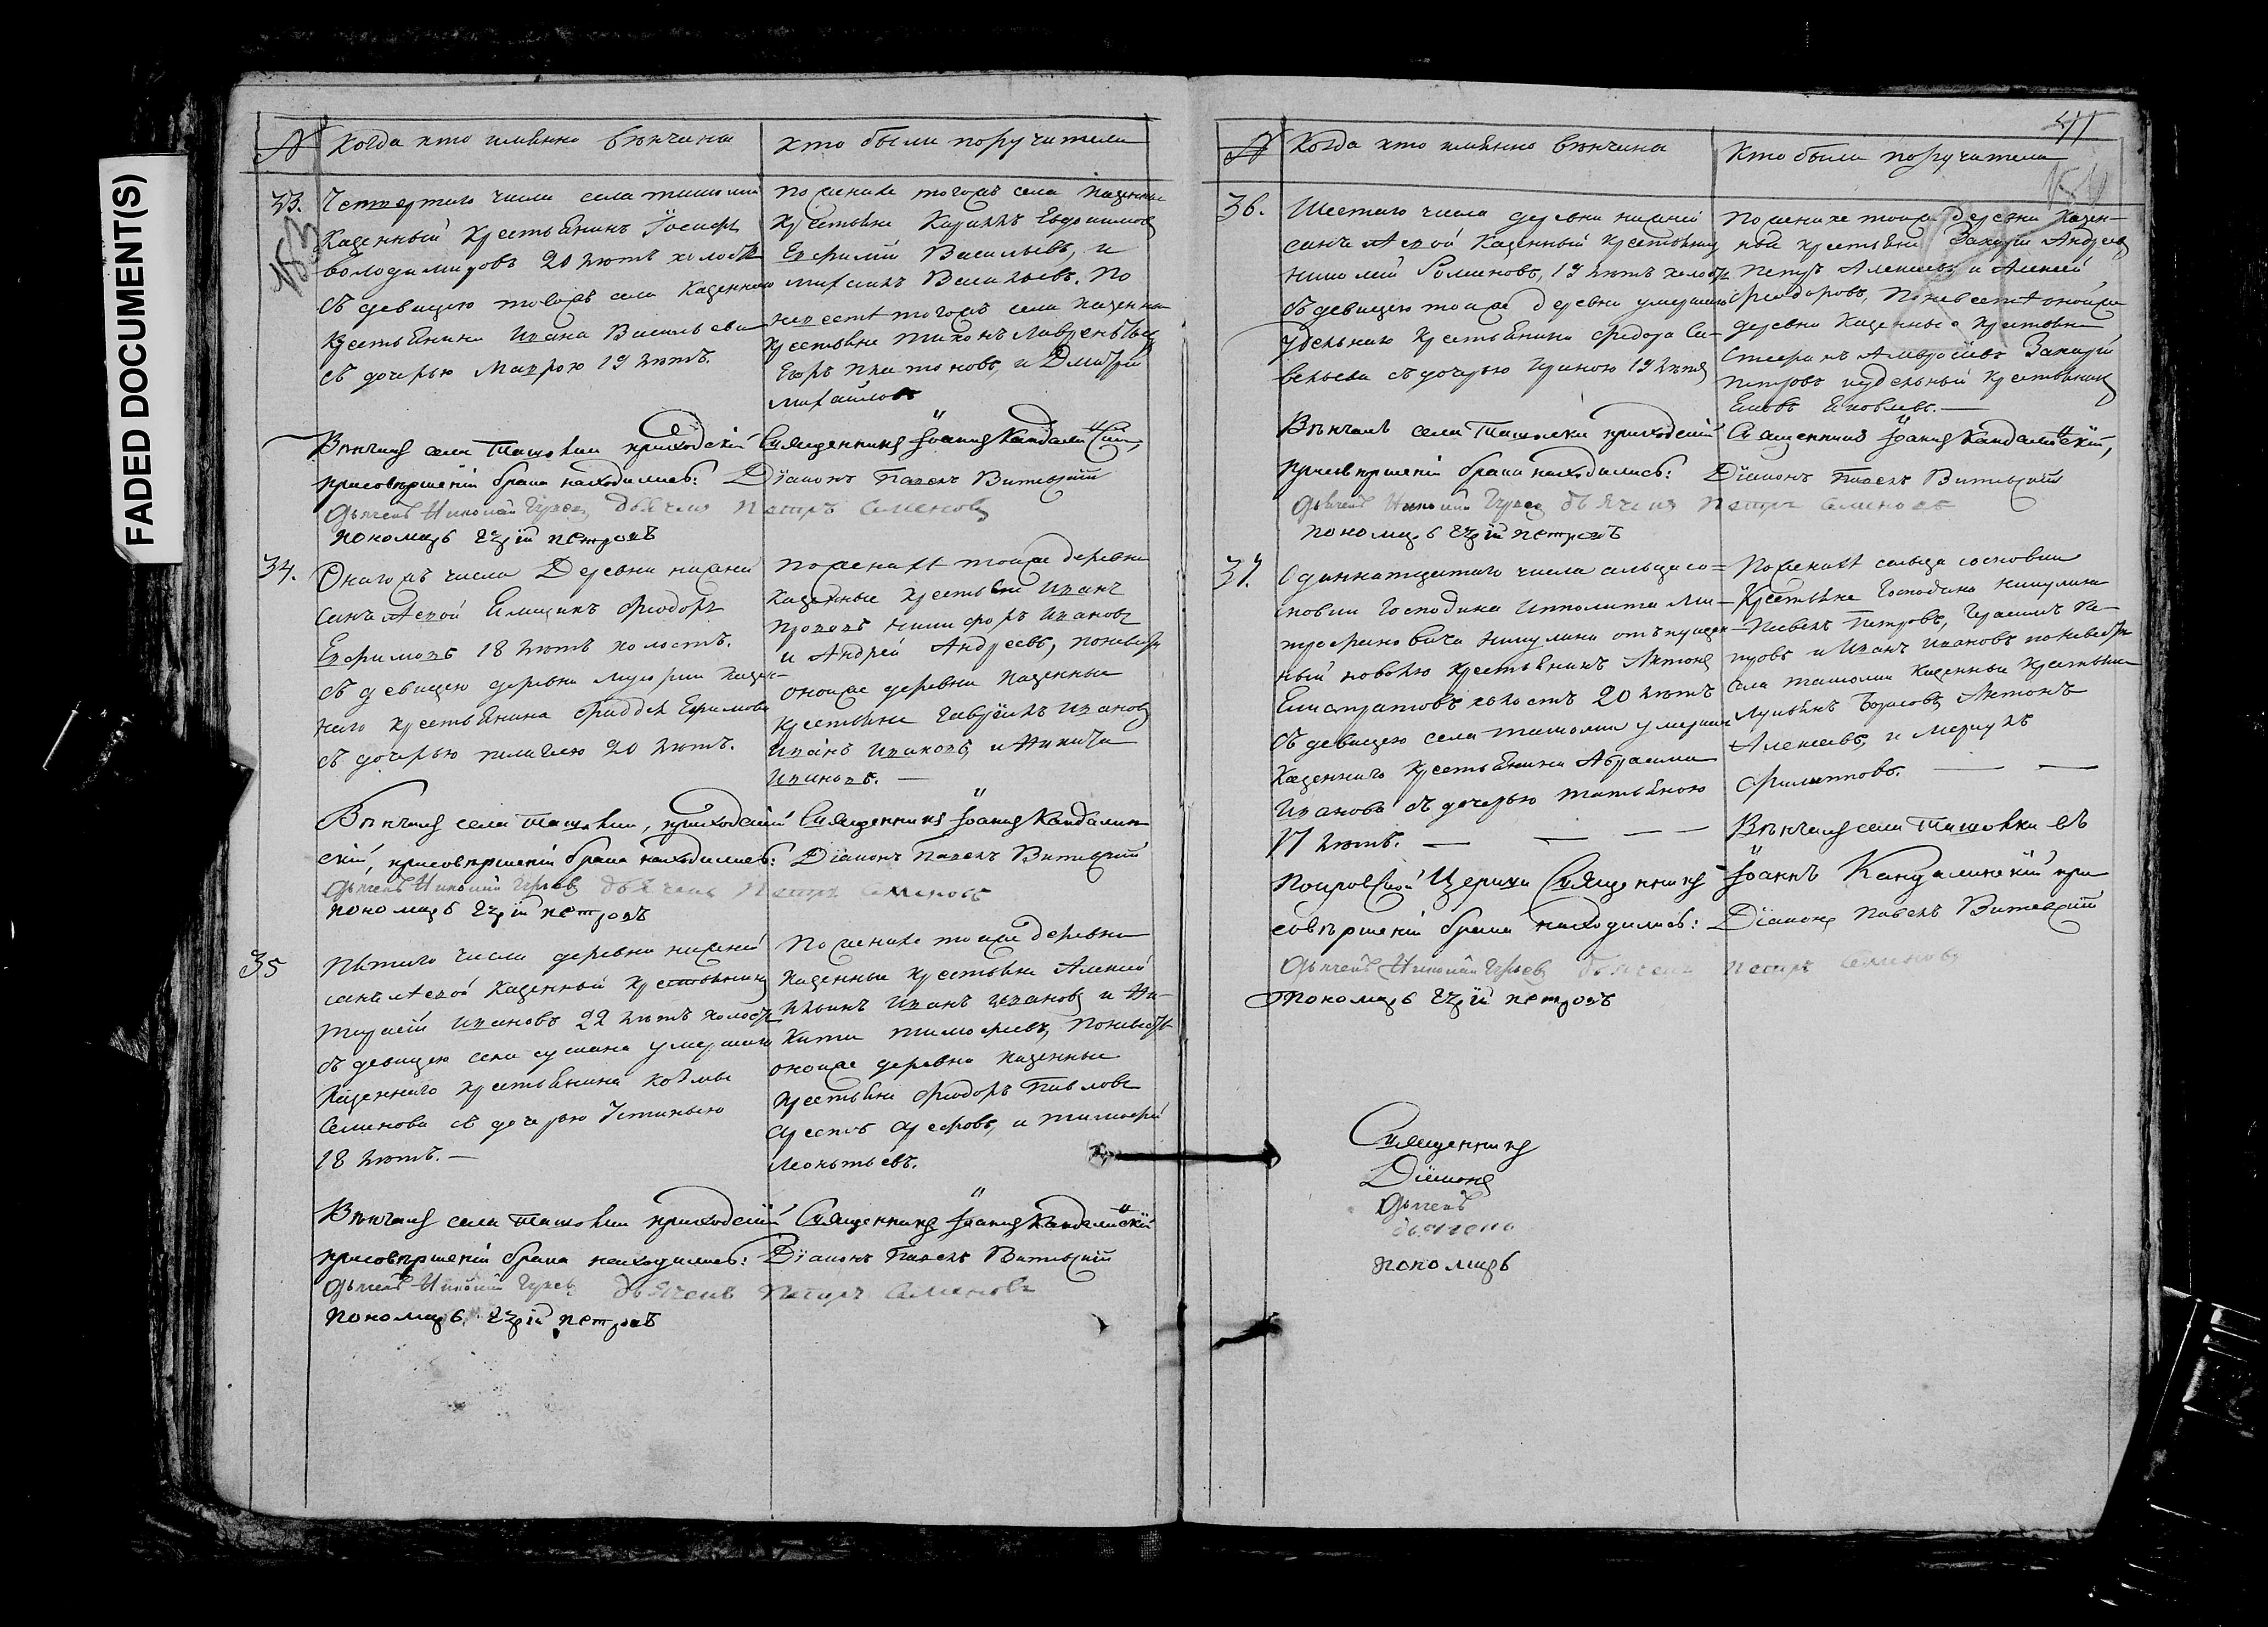 FADED DOCUMENT(S)
№ Когда кто имянно вѣнчаны
Кто были поручители
33.
Четвертаго числа села Ташолки
Казенный Крестьянинъ Іосифъ
Володимировъ 20 лѣтъ холостъ
съ девицею тогожъ села Казеннаго
Крестьянина Ивана Васильева
съ дочерью Маврою 19 лѣтъ.
По женихе тогожъ села Казенные
Крестьяне Кириллъ Евдокимовъ
Ефримъ Васильевъ, и
Михаилъ Васильевъ. По
невесте тогожъ села казенные
Крестьяне Тихонъ Лаврентьевъ
Егоръ Платоновъ, и Дмитрій
Михайловъ
Вѣнчалъ села Ташолки приходскій Священникъ Іоаннъ Кандалинскій,
присовершеніи брака находились: Діаконъ Павелъ Витевскій
Дьячекъ Николай Гурьевъ Дьячекъ Петръ Семеновъ
Пономарь Егоръ Петровъ
34.
Онагожъ числа Деревни нижней
Санчелеевой Ямщикъ Фіодоръ
Ефримовъ 18 лѣтъ холостъ.
съ девицею деревни Мусорки Казен-
наго Крестьянина Фаддея Ефимова
съ дочерью Пелагеею 20 лѣтъ.
По женихе тойже деревни
Казенные Крестьяне Иванъ
Никифоръ Ивановъ
и Андрей Андреевъ, по невесте
онойже деревни Казенные
Крестьяне Гавріилъ Ивановъ
Иванъ Ивановъ, и Никита
Ивановъ. —
Вѣнчалъ села Ташолки, приходскій Священникъ Іоаннъ Кандалин-
скій, присовершеніи брака находились: Діаконъ Павелъ Витевскій
Дьячекъ Николай Гурьевъ Дьячекъ Петръ Семеновъ
Пономарь Егоръ Петровъ
35
Пятаго числа деревни нижней
Санчелеевой Казенный Крестьянинъ
Тарасій Ивановъ 22 лѣтъ холостъ
съ девицею села Сускана умершаго
Казеннаго Крестьянина Козмы
Семенова съ дочерью Устиньею
18 лѣтъ. —
По женихе тойже деревни
Казенные Крестьяне Алексей
Ильинъ Иванъ Ивановъ и Ни-
кита Тимофеевъ, по невесте
онойже деревни Казенные
Крестьяне Фіодоръ Павловъ
и Тимофей
Леонтьевъ.
Вѣнчалъ села Ташолки приходскій Священникъ Іоаннъ Кандалинскій
присовершеніи брака находились: Діаконъ Павелъ Витевскій
Дьячекъ Николай Гурьевъ Дьячекъ Петръ Семеновъ
Пономарь Егоръ Петровъ
41
№ Когда кто имянно вѣнчаны
Кто были поручители
36.
Шестаго числа деревни нижней
Санчелеевой Казенный Крестьянинъ
Николай Романовъ, 19 лѣтъ холостъ
съ девицею тойже деревни умершаго
Удельнаго Крестьянина Фіодора Са-
вельева съ дочерью Ириною 19 лѣтъ
По женихе тойже деревни Казен-
ные Крестьяне Захаръ Андреевъ
Петръ Алексеевъ и Алексей
Фіодоровъ, По невесте онойже
деревни Казенные Крестьяне
Стефанъ Захаръ
Петровъ и удельный Крестьянинъ
Яковлевъ. —
Вѣнчалъ села Ташолки приходскій Священникъ Іоаннъ Кандалинскій,
присовершеніи брака находились: Діаконъ Павелъ Витевскій
Дьячекъ Николай Гурьевъ Дьячекъ Петръ Семеновъ
Пономарь Егоръ Петровъ
37.
Одиннатцатаго числа сельца Со-
сновки Господина Ипполита Ми-
трофановича Никулина отъпущен-
ный на волю Крестьянинъ Антонъ
Евстратовъ холостъ 20 лѣтъ
съ девицею села Ташолки умершаго
Казеннаго Крестьянина Абрама
Иванова съ дочерью Татьяною
17 лѣтъ. —
По женихе сельца Сосновки
Крестьяне Господина Никулина
Павелъ Петровъ, Герасимъ Пе-
тровъ и Иванъ Ивановъ по невесте
села Ташолки Казенные Крестьяне
Лукьянъ Борисовъ Антонъ
Алексеевъ, и
Филипповъ. —
Вѣнчалъ села Ташолки съ
Покровской Церкви Священникъ Іоаннъ Кандалинскій при
совершеніи брака находились: Діаконъ Павелъ Витевскій
Дьячекъ Николай Гурьевъ Дьячекъ Петръ Семеновъ
Пономарь Егоръ Петровъ
Священникъ
Діаконъ
Дьячекъ
Дьячекъ
Пономарь